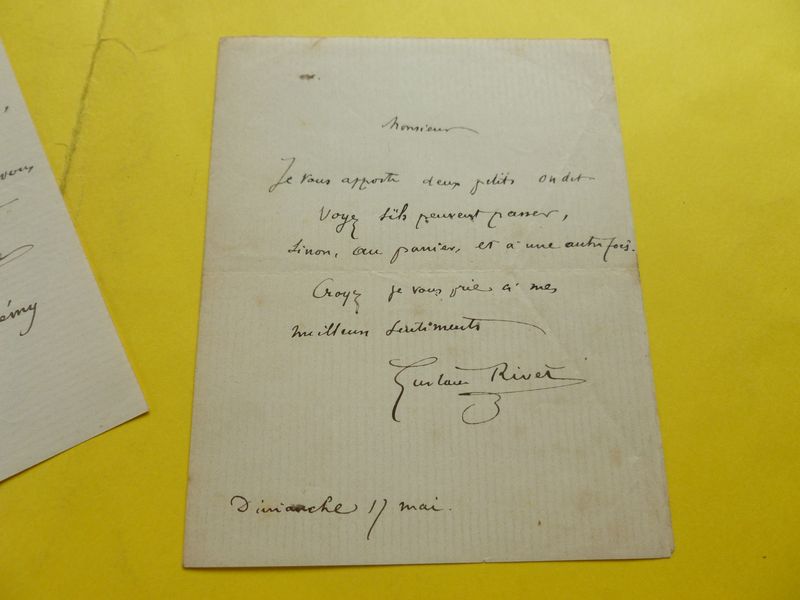 Monsieur
Je vous apporte deux petits on dit
Voyez s'ils peuvent passer,
Sinon, au panier, et à une autre fois.
Croyez je vous prie à mes
meilleurs sentiments
Gustave Rivet
Dimanche 17 mai.
vous
émy